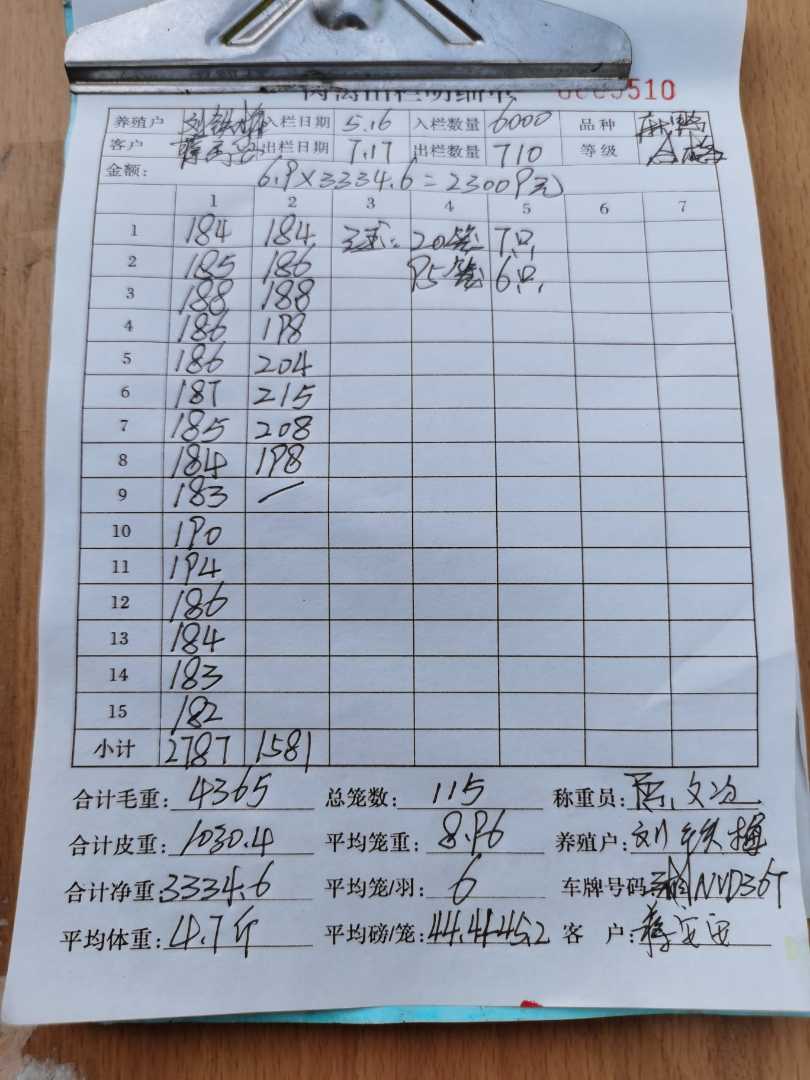 510
养殖户 刘铁梅 入栏日期 5.16 入栏数量 6000 品种
客户 出栏日期 7.17 出栏数量 710 等级 合格
金额: 6.9×3334.6=23009元
1 2 3 4 5 6 7
1 184 184 20笼 7只
2 185 186 95笼 6只
3 188 188
4 186 198
5 186 204
6 187 215
7 185 208
8 184 198
9 183 一
10 190
11 194
12 186
13 184
14 183
15 182
小计 2787 1581
合计毛重: 4365 总笼数: 115 称重员:
合计皮重: 1030.4 平均笼重: 8.96 养殖户: 刘铁梅
合计净重: 3334.6 平均笼/羽: 6 车牌号码
平均体重: 4.7斤 平均磅/笼: 44.4 45.2 客 户: